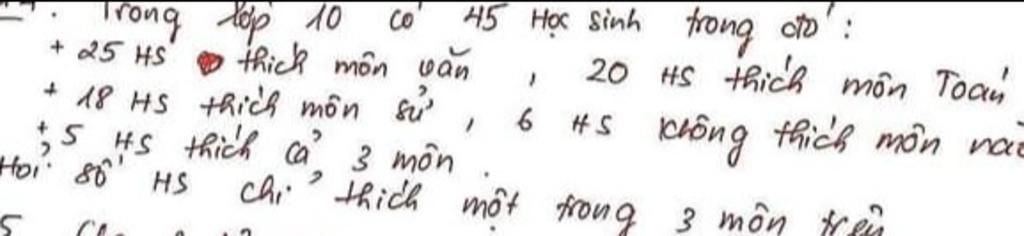 . Trong lớp 10 có 45 Học sinh trong đó :
+ 25 HS thích môn văn , 20 HS thích môn Toán
+ 18 HS thích môn sử , 6 HS không thích môn nào
+ 5 HS thích cả 3 môn .
Hỏi số HS chỉ thích một trong 3 môn trên
5